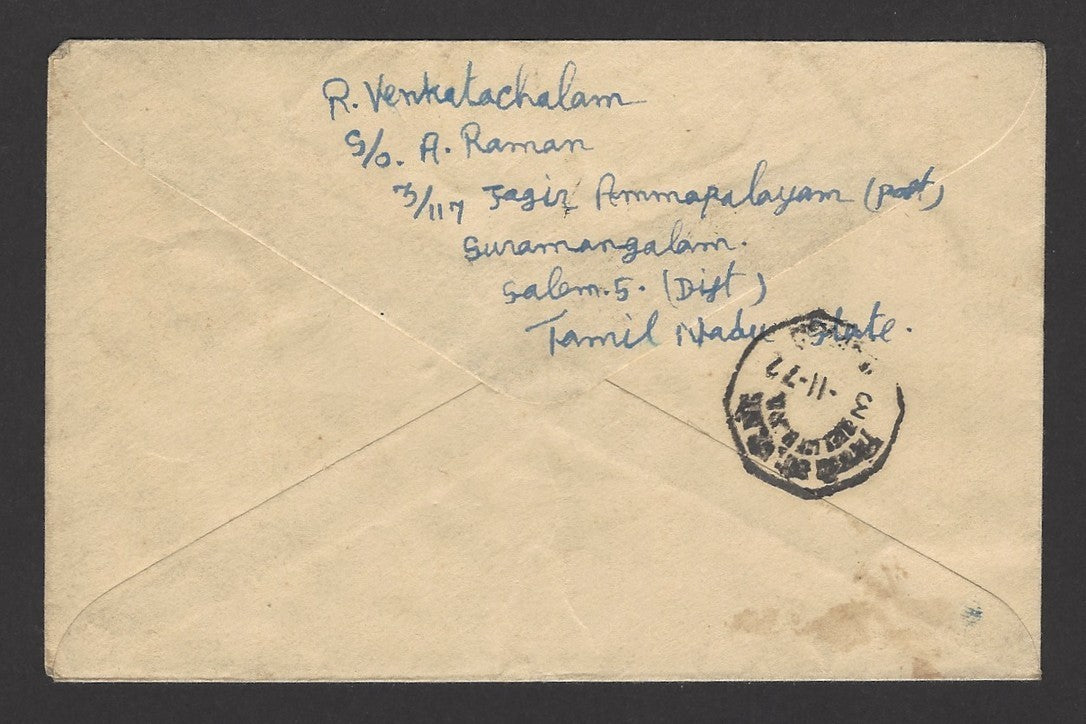 R. Venkatachalam
S/o. A. Raman
3/117 Jagir Ammapalayam (Post)
Suramangalam.
Salem.5. (Dist)
Tamil Nadu State.
-11-72
3